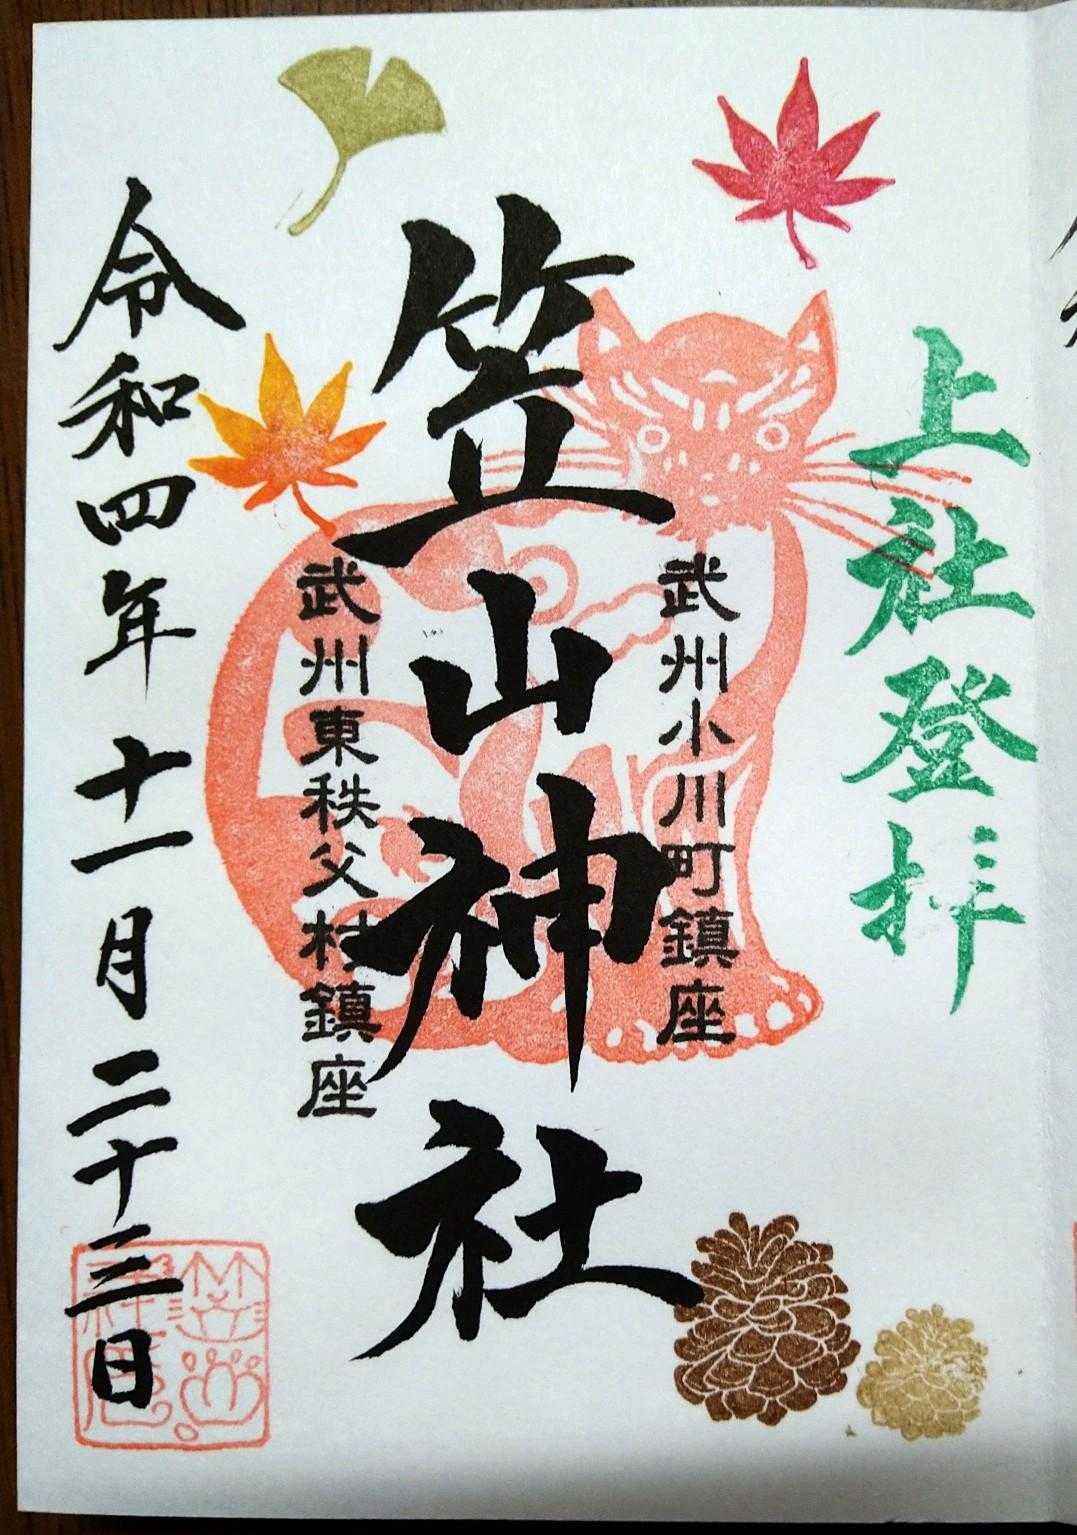 上社登拝
武州小川町鎮座
笠山神社
武州東秩父村鎮座
令和四年十一月二十三日